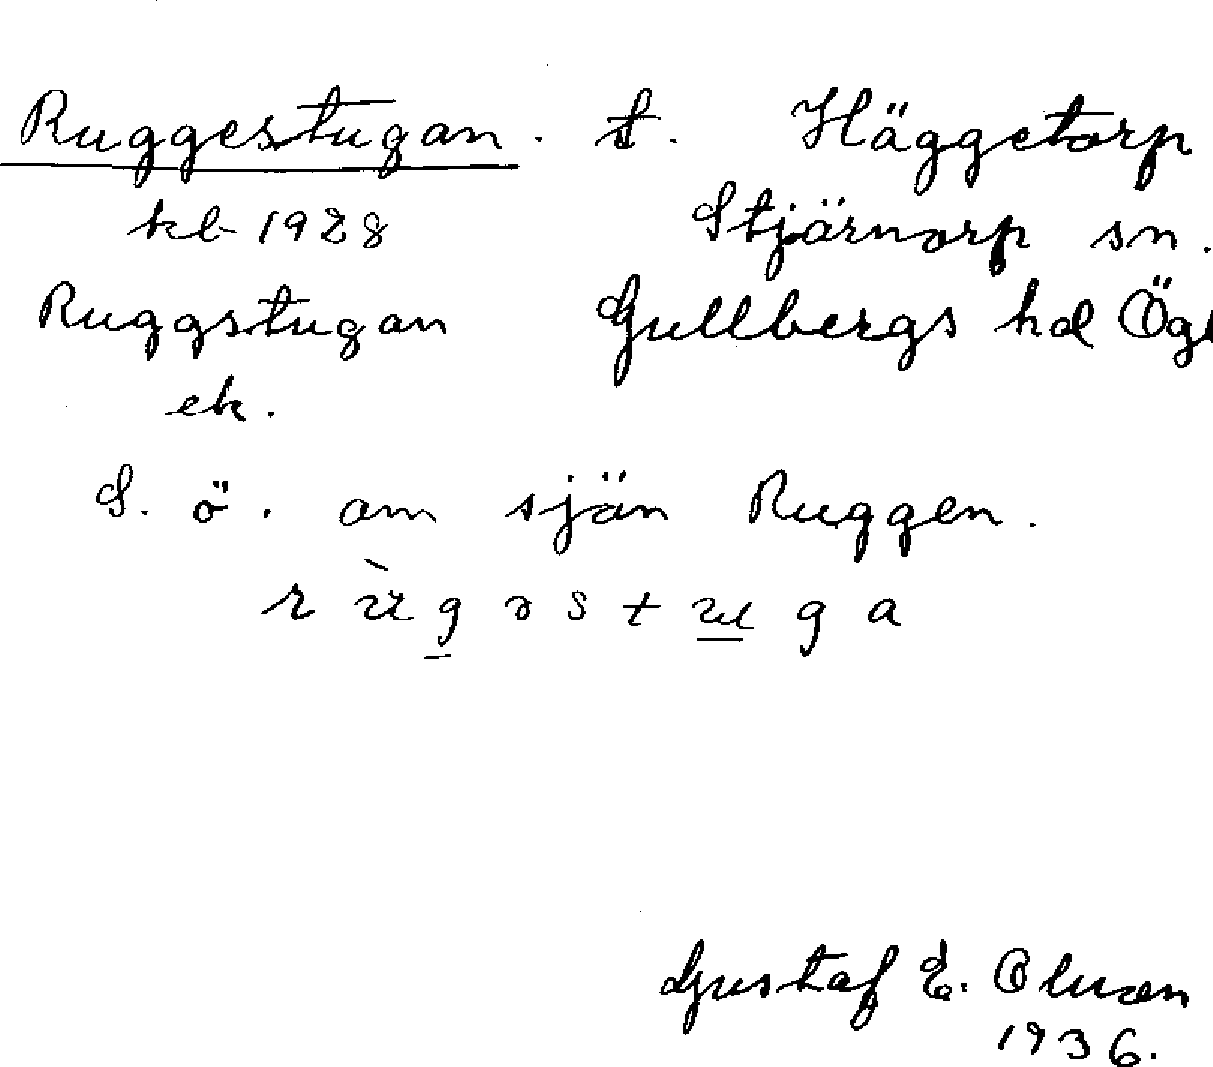 Ruggestugan. t. Häggetorp
kb 1928 Stjärnorp sn.
Ruggstugan Gullbergs hd Ögl
ek.
S. ö. om sjön Ruggen.
Gustaf E. Olsson
1936.